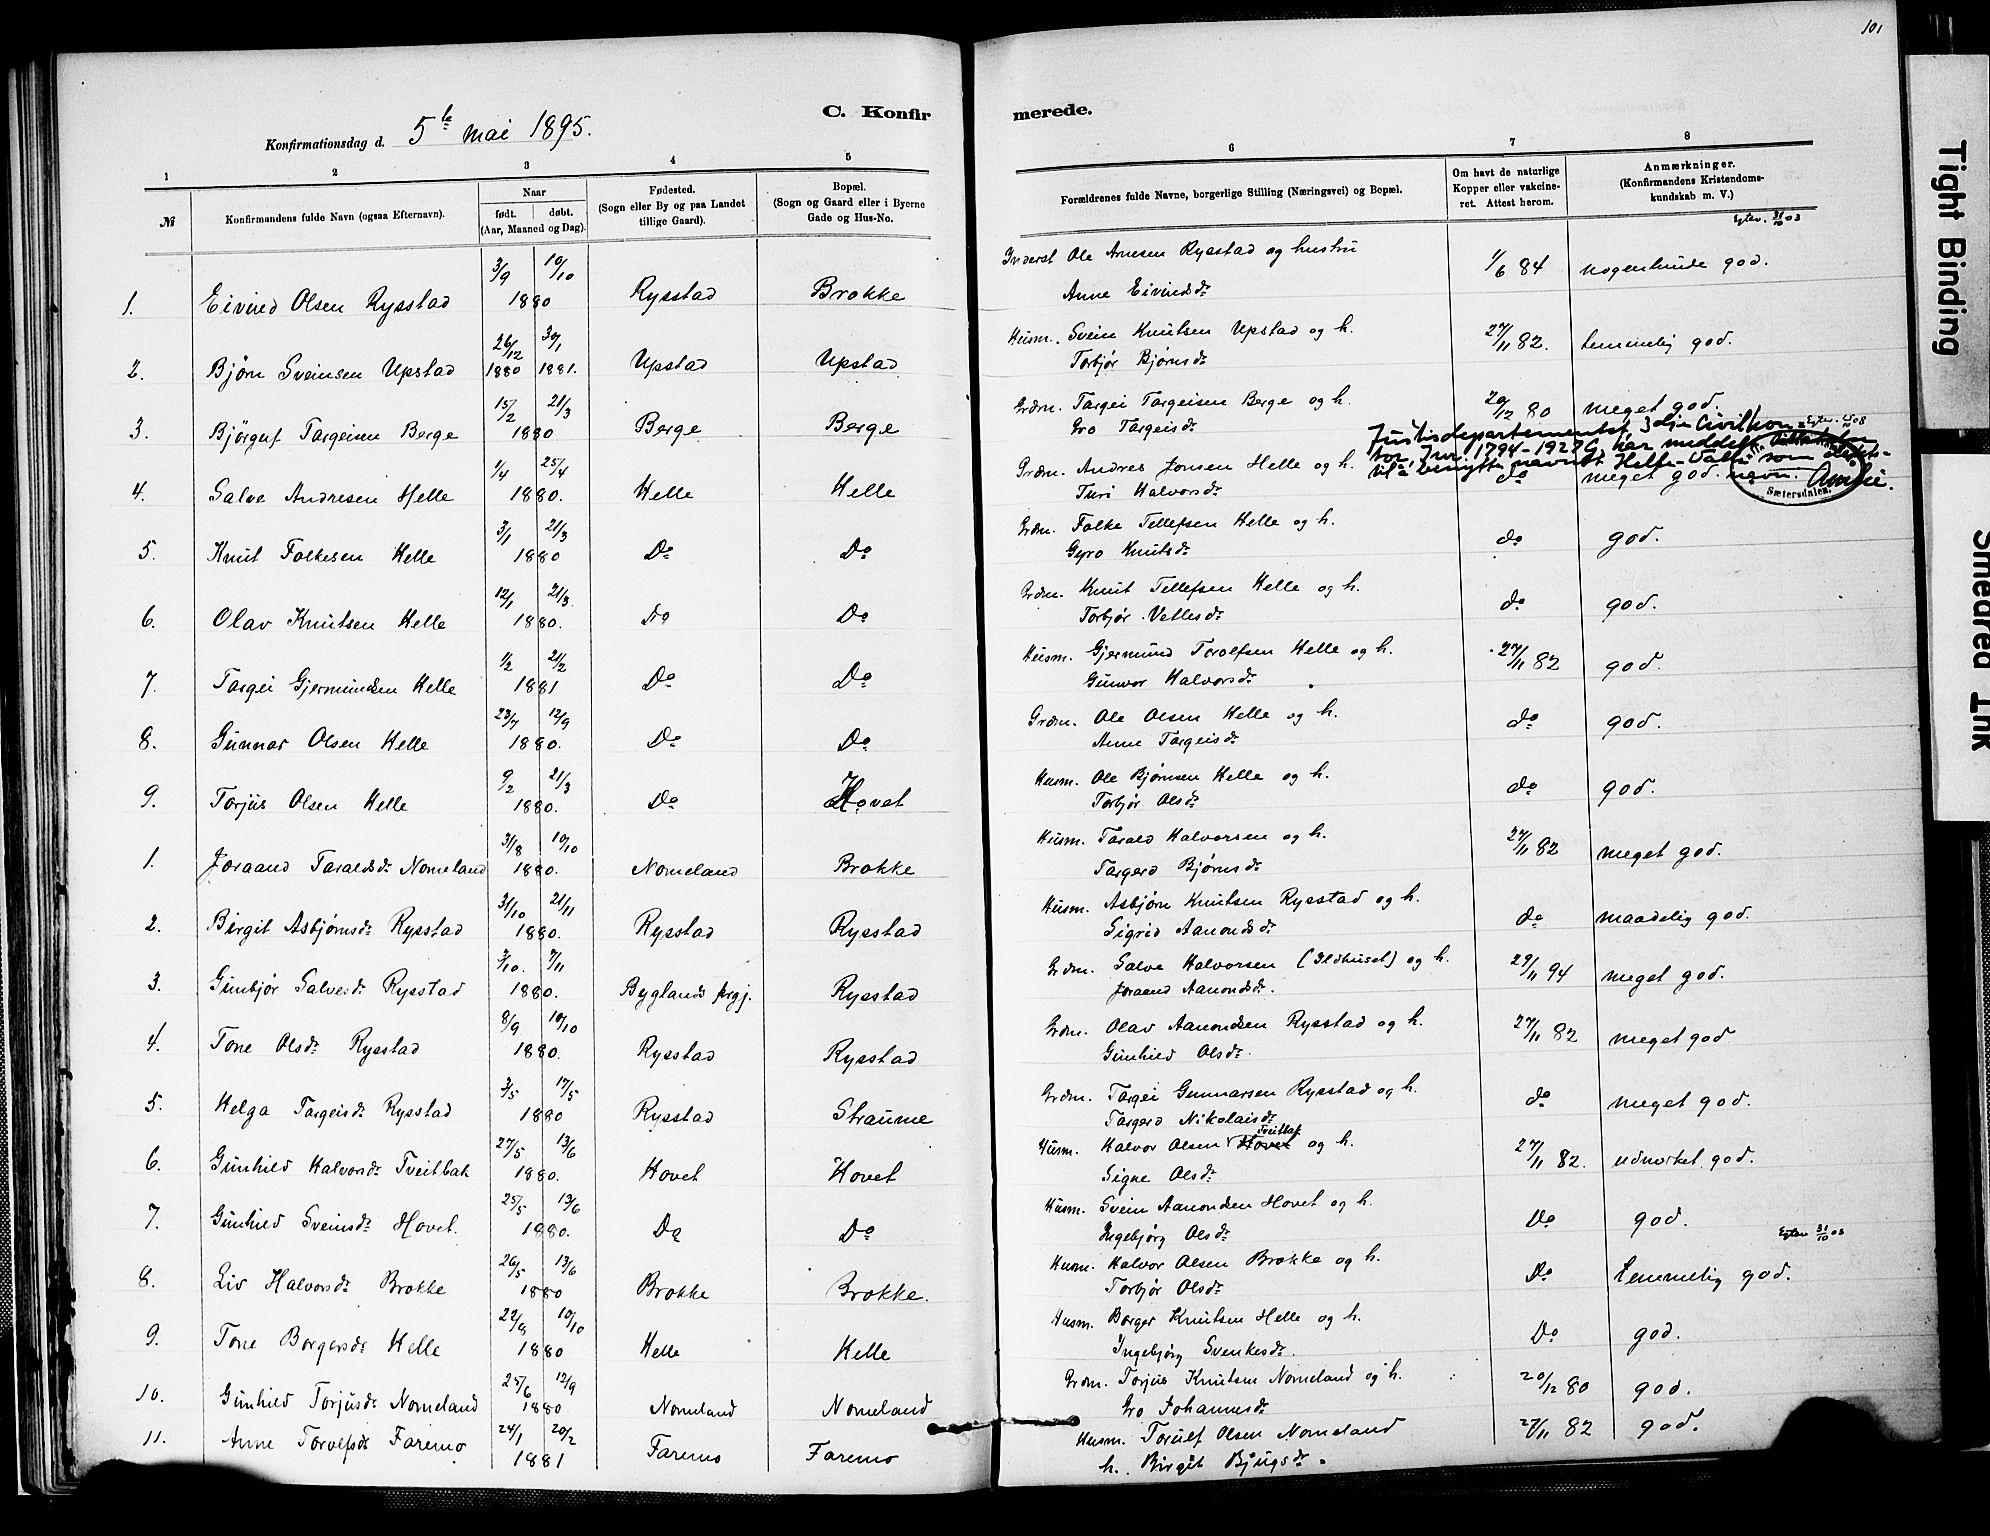 101
Konfirmationsdag d. 5te mai 1895.
C. Konfirmerede.
1 2 3 4 5 6 7 8
№
Konfirmandens fulde Navn (ogsaa Efternavn).
Naar
født. døbt.
(Aar, Maaned og Dag).
Fødested.
(Sogn eller By og paa Landet
tillige Gaard).
Bopæl.
(Sogn og Gaard eller i Byerne
Gade og Hus-No.
Forældrenes fulde Navne, borgerlige Stilling (Næringsvei) og Bopæl.
Om havt de naturlige
Kopper eller vakcine-
ret. Attest herom.
Anmærkninger.
(Konfirmandens Kristendoms-
kundskab m. V.)
31/10 03
3/9 10/10 Inderst Ole Arnesen Rysstad og hustru 1/6 84 nogenlunde god.
1. Eivind Olsen Rysstad 1880 Rysstad Brokke Anne Eivindsdr
26/12 30/1 Husm. Svein Knutsen Upstad og h. 27/11 82. temmelig god.
2. Bjørn Sveinsen Upstad 1880 1881. Upstad Upstad Torbjør Bjørnsdr
15/2 21/3 Grdm. Targei Targeisen Berge og h. 20/12 80 meget god.
3. Bjørguf Targeisen Berge 1880 Berge Berge Gro Targeisdr
Justisdepartementet, 3dje Civilkon-
tor, Jnr. 1794-1927 G, har meddelt tilladelse
til å benytte navnet Helle-Valle som slekts-
navn. Amlie.
Sætersdalen.
1/4 25/4 Grdm. Andres Jonsen Helle og h. do meget god.
4. Salve Andresen Helle 1880. Helle Helle Turi Halvorsdr
3/1 21/3 Grdm. Folke Tellefsen Helle og h. do god.
5. Knut Folkesen Helle 1880 Do Do Gyro Knutsdr
12/1 21/3 Grdm. Knut Tellefsen Helle og h. do god.
6. Olav Knutsen Helle 1880. Do Do Torbjør Vetlesdr
1/2 21/2 Husm. Gjermund Torolfsen Helle og h. 27/11 82 god.
7. Targei Gjermundsen Helle 1881 Do Do Gunvor Halvorsdr
23/7 12/9 Grdm. Ole Olsen Helle og h. do god.
8. Gunnar Olsen Helle 1880. Do Do Anne Targeisdr
9/2 21/3 Husm. Ole Bjørnsen Helle og h. do god.
9. Torjus Olsen Helle 1880. Do Hovet Torbjør Olsdr
31/8 10/10 Husm. Tarald Halvorsen og h. 27/11 82 meget god.
1. Joraand Taraldsdr Nomeland 1880. Nomeland Brokke Targerd Bjørnsdr
31/10 21/11 Husm. Asbjørn Knutsen Rysstad og h. do maadelig god.
2. Birgit Asbjørnsdr Rysstad 1880. Rysstad Rysstad Sigrid Aanondsdr
3/10. 7/11 Grdm. Salve Halvorsen (Ildhuset) og h. 29/11 94 meget god.
3. Gunbjør Salvesdr Rysstad 1880. Byglands prgj. Rysstad Joraand Aanondsdr.
8/9 10/10 Grdm. Olav Aanondsen Rysstad og h. 27/11 82 meget god
4. Tone Olsdr Rysstad 1880. Rysstad Rysstad Gunhild Olsdr.
3/5 17/5 Grdm. Targei Gunnarsen Rysstad og h. do meget god.
5. Helga Targeisdr Rysstad 1880 Rysstad Straume Targerd Nikolaisdr
27/5 13/6 Husm. Halvor Olsen Hovet Tveitbak og h. 27/11 82. udmerket god.
6. Gunhild Halvorsdr Tveitbak 1880. Hovet Hovet Signe Olsdr
25/5 13/6 Husm. Svein Aanondsen Hovet og h. Do god.
7. Gunhild Sveinsdr Hovet. 1880. Do Do Ingebjørg Olsdr
31/10 03
26/5 13/6 Husm. Halvor Olsen Brokke og h. Do temmelig god.
8. Liv Halvorsdr Brokke 1880 Brokke Brokke. Torbjør Olsdr
10/10 Husm. Borger Knutsen Helle og h. Do god.
9. Tone Borgersdr Helle 1880 Helle Helle Ingebjørg Svenkesdr.
25/6 12/9 Grdm. Torjus Knutsen Nomeland og h. 20/12 80 god.
10. Gunhild Torjusdr Nomeland 1880 Nomeland Nomeland Gro Johannesdr
24/1 20/2 Husm. Torulf Olsen Nomeland 27/11 82 god.
11. Anne Torolfsdr Faremo 1881 Faremo Faremo h. Birgit Bjugsdr.
Tight Binding
Smeared Ink